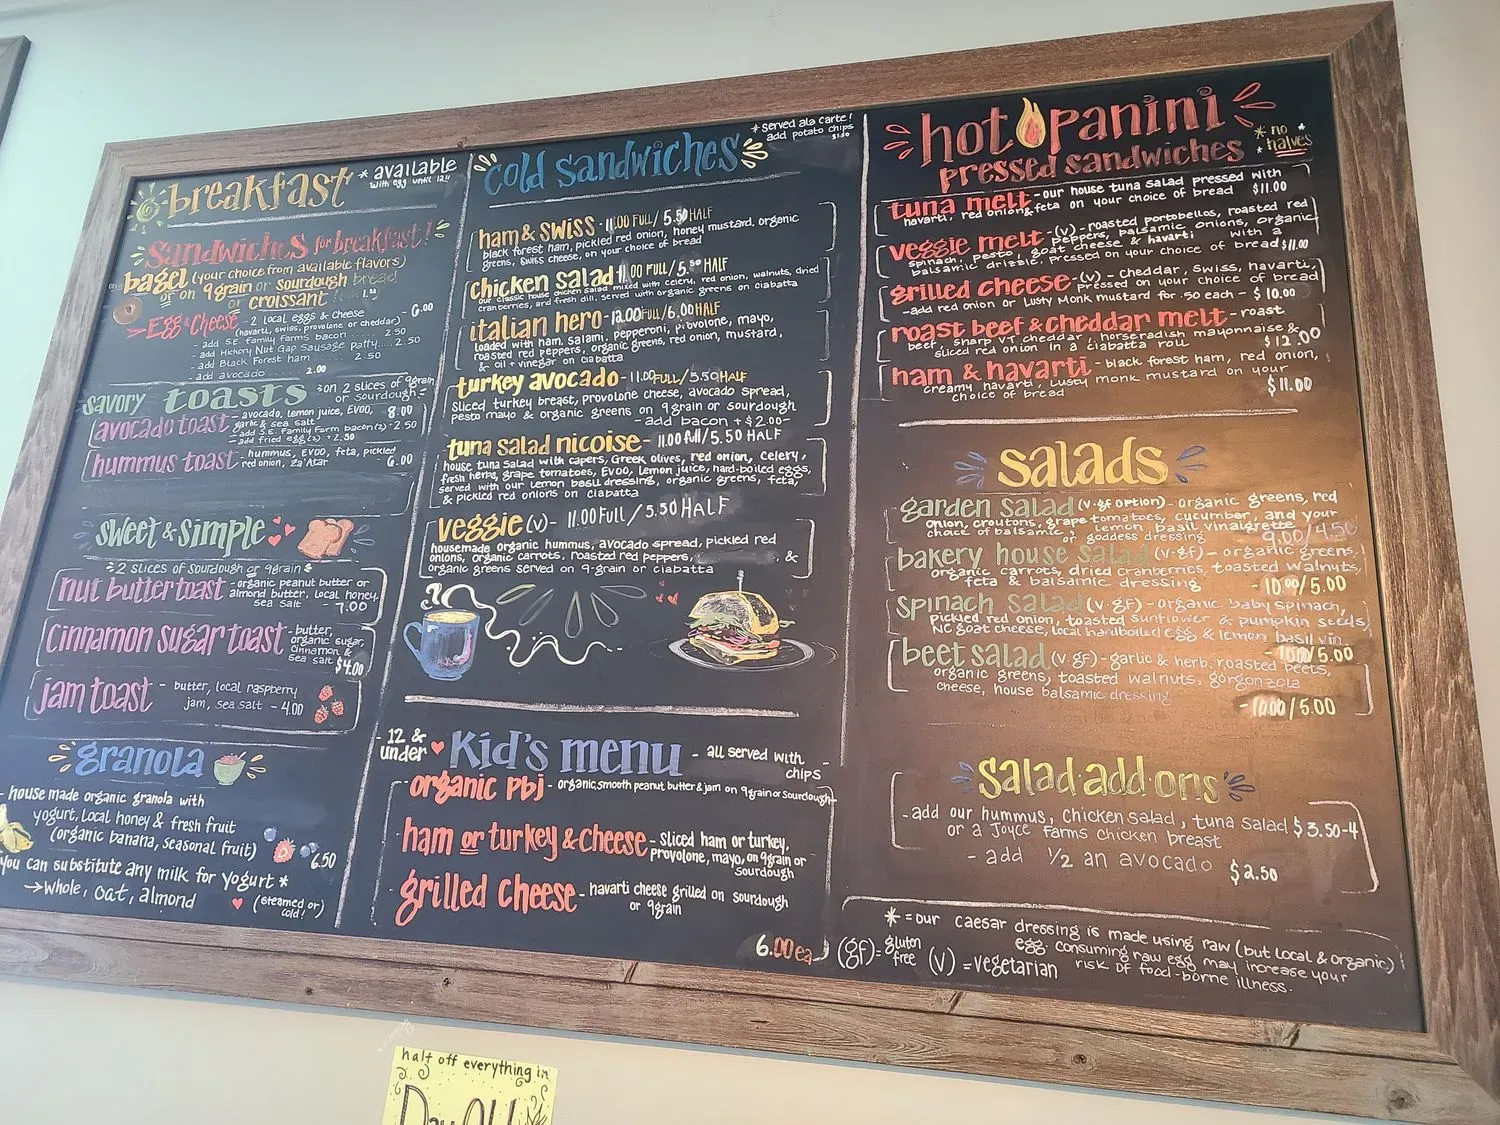 breakfast * available
with egg until 12!!
sandwiches for breakfast!
bagel (your choice from available flavors)
or on 9grain or sourdough bread
or croissant
Egg & Cheese - 2 local eggs & cheese 6.00
(havarti, swiss, provolone or cheddar)
- add S.E. family farms bacon ... 2.50
- add Hickory Nut Gap Sausage Patty.... 2.50
- add Black Forest ham ...... 2.50
- add avocado ........ 2.00
savory toasts on 2 slices of 9grain
or sourdough
avocado toast - avocado, lemon juice, EVOO, 8.00
garlic & sea salt
add S.E. Family Farm bacon (2) +2.50
- add fried egg (2) + 2.50
hummus toast - hummus, EVOO, feta, pickled
red onion, Za'Atar 6.00
sweet & simple
* 2 slices of sourdough or 9grain *
nut butter toast - organic peanut butter or
almond butter, local honey,
sea salt - 7.00
cinnamon sugar toast - butter,
organic sugar,
cinnamon &
sea salt $4.00
jam toast - butter, local raspberry
jam, sea salt - 4.00
granola
- house made organic granola with
yogurt, local honey & fresh fruit
(organic banana, seasonal fruit)
6.50
you can substitute any milk for yogurt *
→ whole, oat, almond (steamed or)
cold!
cold sandwiches
* served ala carte!
add potato chips
$1.50
ham & swiss - 11.00 FULL / 5.50 HALF
black forest ham, pickled red onion, honey mustard, organic
greens, swiss cheese, on your choice of bread
chicken salad 11.00 FULL / 5.50 HALF
our classic house chicken salad mixed with celery, red onion, walnuts, dried
cranberries, and fresh dill, served with organic greens on ciabatta
italian hero - 12.00 FULL / 6.00 HALF
loaded with ham, salami, pepperoni, provolone, mayo,
roasted red peppers, organic greens, red onion, mustard,
& oil + vinegar on ciabatta
turkey avocado - 11.00 FULL / 5.50 HALF
sliced turkey breast, provolone cheese, avocado spread,
pesto mayo & organic greens on 9grain or sourdough
- add bacon + $2.00 -
tuna salad nicoise - 11.00 full / 5.50 HALF
house tuna salad with capers, Greek olives, red onion, celery,
fresh herbs, grape tomatoes, EVOO, lemon juice, hard-boiled eggs,
served with our lemon basil dressing, organic greens, feta,
& pickled red onions on ciabatta
veggie (v) - 11.00 Full / 5.50 HALF
housemade organic hummus, avocado spread, pickled red
onions, organic carrots, roasted red peppers, &
organic greens served on 9-grain or ciabatta
- 12 &
under Kid's menu - all served with
chips
organic pbj - organic, smooth peanut butter & jam on 9grain or sourdough
ham or turkey & cheese - sliced ham or turkey,
provolone, mayo, on 9grain or
sourdough
grilled cheese - havarti cheese grilled on sourdough
or 9grain
6.00 ea
hot panini
pressed sandwiches
* no *
* halves
tuna melt - our house tuna salad pressed with
havarti, red onion & feta on your choice of bread $11.00
veggie melt - (v) - roasted portobellos, roasted red
peppers, balsamic, onions, organic
spinach, pesto, goat cheese & havarti with a
balsamic drizzle. Pressed on your choice of bread $11.00
grilled cheese - (v) - cheddar, swiss, havarti,
pressed on your choice of bread
- add red onion or Lusty Monk mustard for .50 each - $10.00
roast beef & cheddar melt - roast
beef, sharp VT cheddar, horseradish mayonnaise &
sliced red onion in a ciabatta roll $12.00
ham & havarti - black forest ham, red onion,
creamy havarti, Lusty monk mustard on your
choice of bread $11.00
salads
garden salad (v-gf option) - organic greens, red
onion, croutons, grape tomatoes, cucumber, and your
choice of balsamic, lemon basil vinaigrette
or goddess dressing 9.00/4.50
bakery house salad (v-gf) - organic greens,
organic carrots, dried cranberries, toasted walnuts,
feta & balsamic dressing - 10.00/5.00
spinach salad (v-gf) - organic baby spinach,
pickled red onion, toasted sunflower & pumpkin seeds,
NC goat cheese, local hardboiled egg & lemon basil vin.
- 10.00/5.00
beet salad (v-gf) - garlic & herb roasted beets,
organic greens, toasted walnuts, gorgonzola
cheese, house balsamic dressing
- 10.00/5.00
salad add-ons
- add our hummus, chicken salad, tuna salad $3.50-4
or a Joyce Farms chicken breast
- add 1/2 an avocado $2.50
* = our caesar dressing is made using raw (but local & organic)
egg. consuming raw egg may increase your
risk of food-borne illness.
(gf) = gluten
free (v) = vegetarian
half off everything in
Day Old